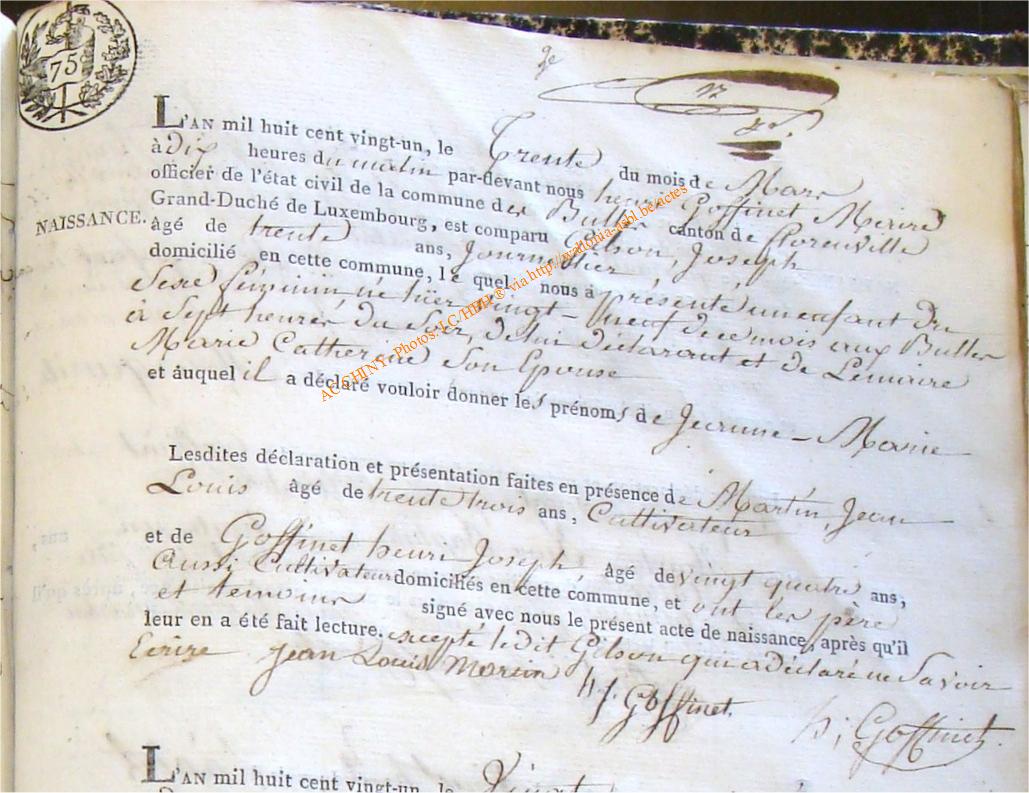 75
L'AN mil huit cent vingt-un, le Trente du mois de Mars
à Dix heures du matin par-devant nous henri Goffinet Meire
officier de l'état civil de la commune des Bulles canton de florenville
Grand-Duché de Luxembourg, est comparu Gilson, Joseph
NAISSANCE.
âgé de trente ans, Journalier,
domicilié en cette commune, lequel nous à présenté un enfant du
Sexe féminin, né hier vingt-neuf de ce mois aux Bulles
à Sept heures du Soir, de lui déclarant et de Lemaire
Marie Catherine Son Epouse
et auquel il a déclaré vouloir donner les prénoms de Jeanne-Marie
Lesdites déclaration et présentation faites en présence de Martin, Jean
Louis âgé de trente trois ans, Cultivateur
et de Goffinet henri Joseph, âgé de vingt quatre ans,
Aussi Cultivateur domiciliés en cette commune, et ont les père
et temoins signé avec nous le présent acte de naissance, après qu'il
leur en a été fait lecture. excepté ledit Gilson qui a Déclaré ne Savoir
Ecrire Jean Louis Martin
h j. Goffinet.
h; Goffinet.
L'AN mil huit cent vingt-un, le
AC CHINY - Photos: LC/HBH ® via http://wallonia-asbl.be/actes